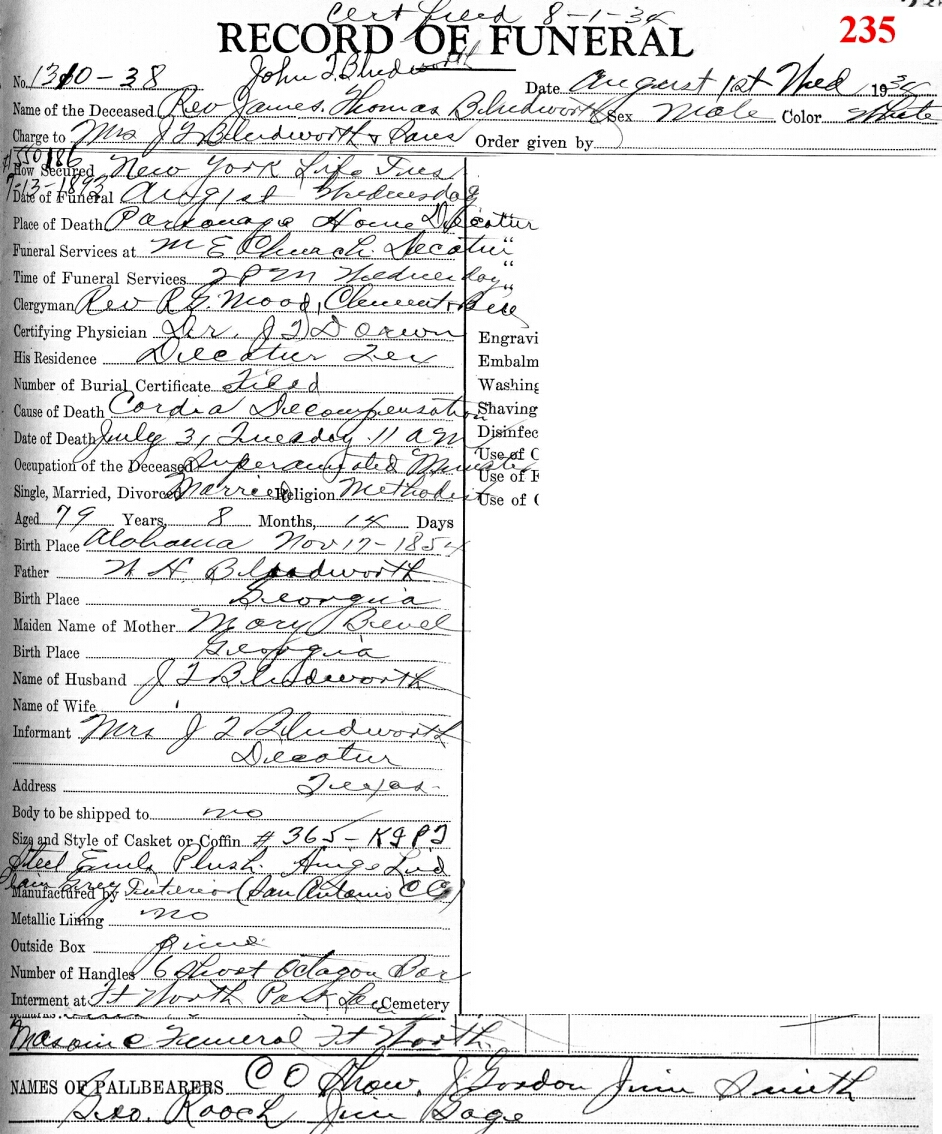 Cert filed 8-1-34
235
RECORD OF FUNERAL
No. 1310-38 John T. Bludworth Date August 1st Wed 1934
Name of the Deceased Rev James Thomas Bludworth Sex Male Color White
Charge to Mrs J T Bludworth & Sons Order given by
#550186
How Secured New York Life Ins
7-13-1893
Date of Funeral Aug 1st Wednesday
Place of Death Parsonage Home Decatur
Funeral Services at M E Church Decatur "
Time of Funeral Services 2 PM Wednesday "
Clergyman Rev R G. Mood, Clement &
Certifying Physician Dr. J T
His Residence Decatur Tex
Number of Burial Certificate Filed
Cause of Death Cordia Decompensation
Date of Death July 31 Tuesday 11 a m
Occupation of the Deceased Superanuated Minister
Single, Married, Divorced Married Religion Methodist
Aged 79 Years, 8 Months, 14 Days
Birth Place Alabama Nov 17-1854
Father W H Bloodworth
Birth Place Georgia
Maiden Name of Mother Mary Bevel
Birth Place Georgia
Name of Husband J T Bludworth
Name of Wife
Informant Mrs J T Bludworth
Decatur
Address Texas
Body to be shipped to no
Size and Style of Casket or Coffin # 365-
Steel Plush. Hinge Lid
Grey Interior (San Antonio C Co)
Manufactured by
Metallic Lining no
Outside Box pine
Number of Handles 6 Octagon Bar
Interment at Ft Worth Park Cemetery
Masonic Funeral Ft Worth.
NAMES OF PALLBEARERS C O Shaw, J Gordon Jim Smith
Geo. Roach Jim Gage
Engravi
Embalm
Washing
Shaving
Disinfec
Use of C
Use of F
Use of C